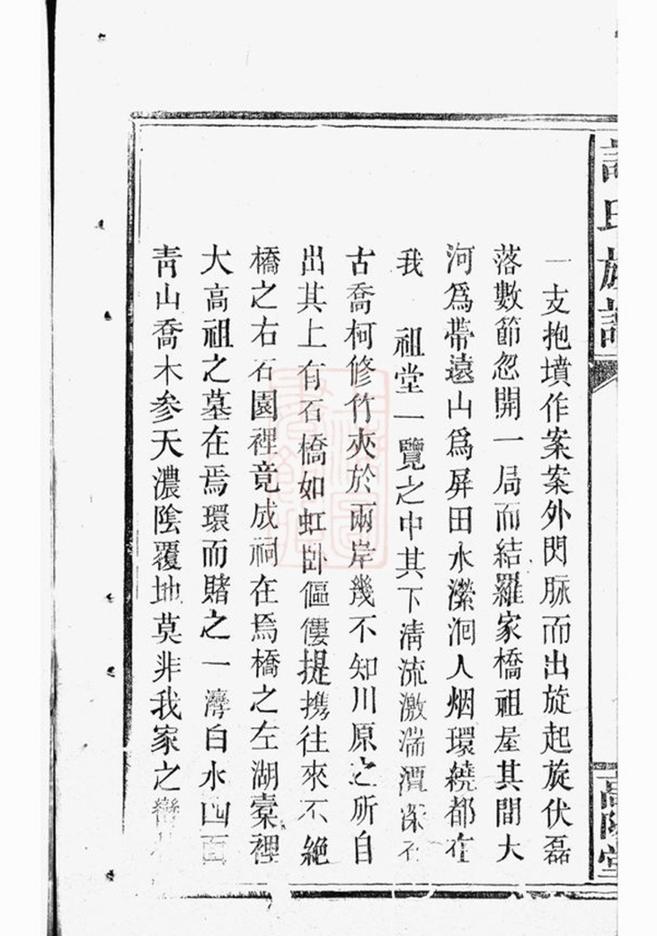 氏族譜
高陽堂
一支抱墳作案案外閃脉而出旋起旋伏磊
落數節忽開一局而結羅家橋祖屋其間大
河爲帶遠山爲屏田水瀠洄人烟環繞都在
我 祖堂一覽之中其下淸流激湍潭深石
古喬柯修竹夾於兩岸幾不知川原之所自
出其上有石橋如虹卧傴僂提携往來不絶
橋之右石園裡竟成祠在焉橋之左湖槖裡
大高祖之墓在焉環而賭之一灣白水四面
靑山喬木參天濃陰覆地莫非我家之